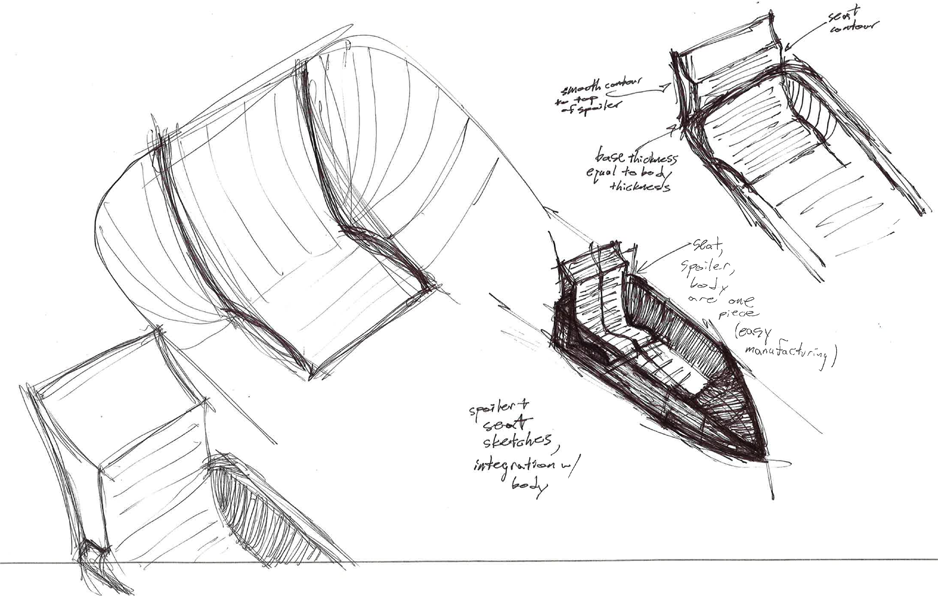 seat
contour
smooth contour
to top
of spoiler
base thickness
equal to body
thickness
seat,
spoiler,
body
are one
piece
(easy
manufacturing)
spoiler +
seat
sketches,
integration w/
body